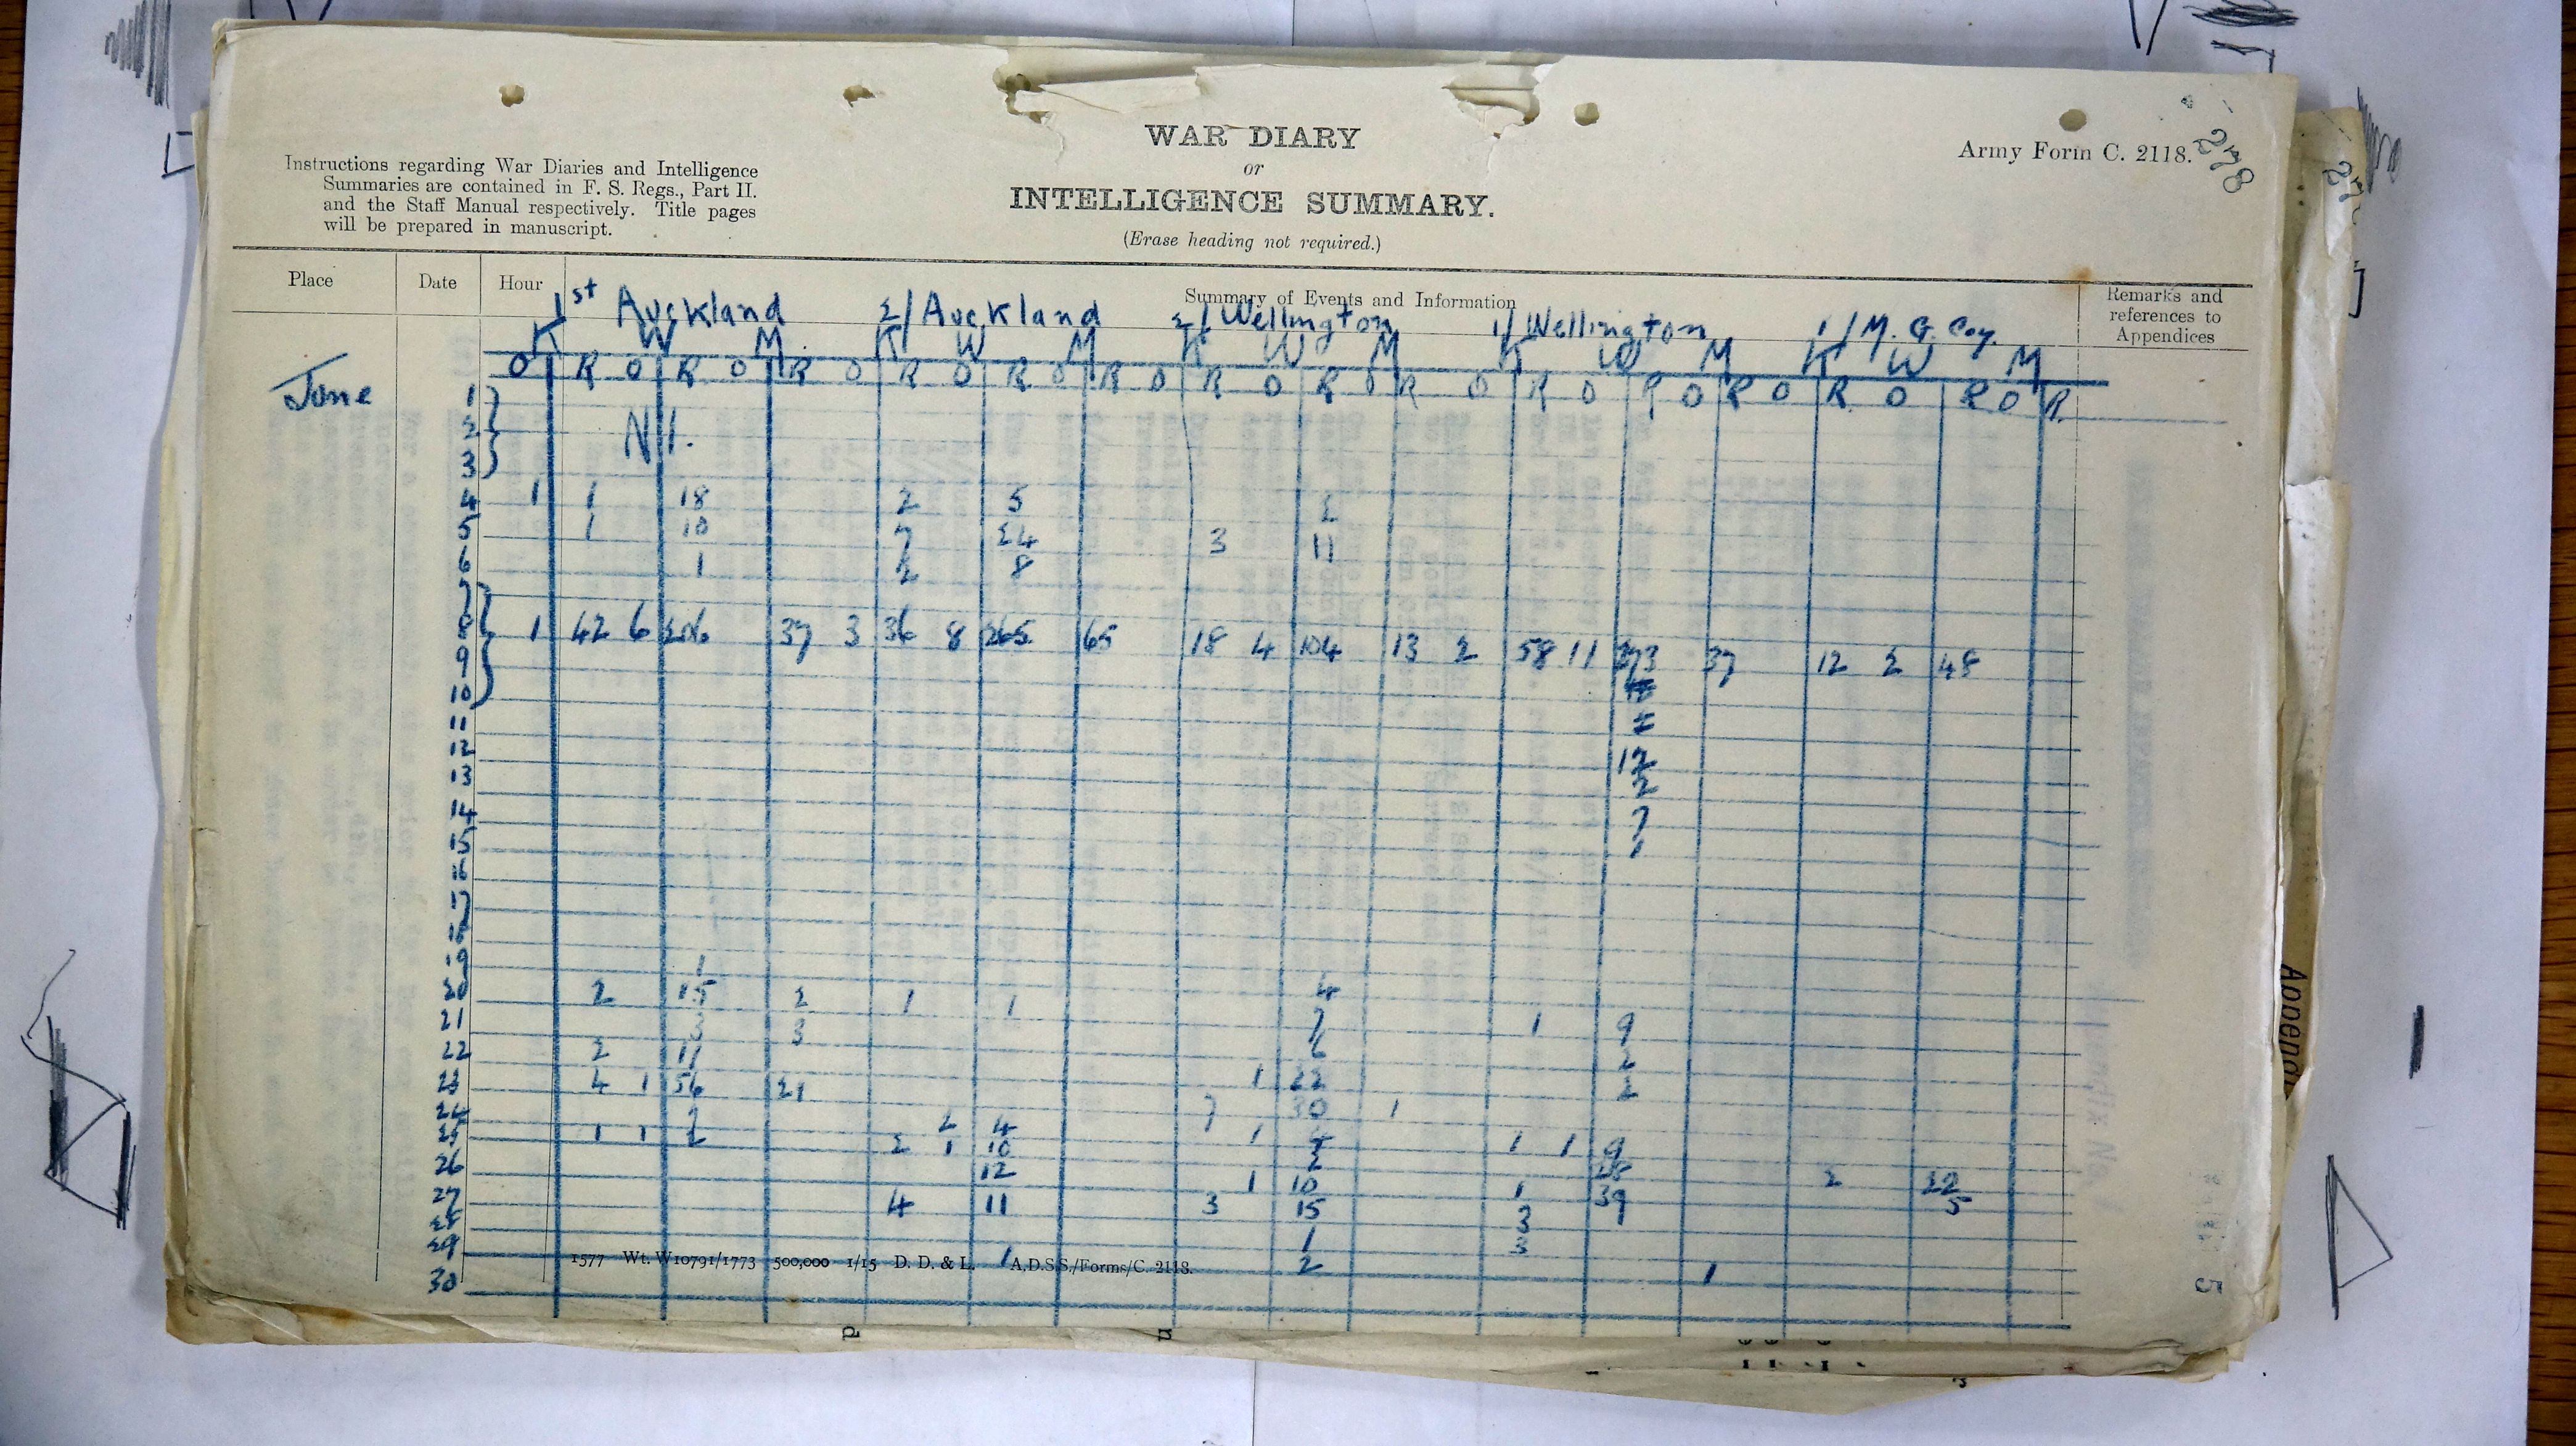 WAR DIARY
or
INTELLIGENCE SUMMARY.
(Erase heading not required.)
Instructions regarding War Diaries and Intelligence
Summaries are contained in F. S. Regs., Part II.
and the Staff Manual respectively. Title pages
will be prepared in manuscript.
Army Form C. 2118.
278
Place Date Hour Summary of Events and Information Remarks and
references to
Appendices
1st Auckland 2/Auckland 2/Wellington 1/Wellington 1/M. G. Coy.
K W M K W M K W M K W M K W M
O R O R O R O R O R O R O R O R O R O R O R O R O R O R O R
June 1
2 Nil.
3
4 1 1 18 2 5 2
5 1 10 7 24 3 11
6 1 2 8
7
8 1 42 6 206 37 3 36 8 265 65 18 4 104 13 2 58 11 273 37 12 2 48
9
10
11
12 12
13 2
14 7
15 1
16
17
18
19 1
20 2 15 2 1 1 4
21 3 3 7 1 9
22 2 11 6 2
23 4 1 56 21 1 22 2
24 7 2 4 7 30 1
25 1 1 2 2 1 10 1 1 1 9
26 12 1 10 1 2 22
27 4 11 3 15 39 5
28 1 3
29 1 2 3
30 1
1577 Wt. W10791/1773 500,000 1/15 D. D. & L. A.D.S.S./Forms/C. 2118.
Appendi